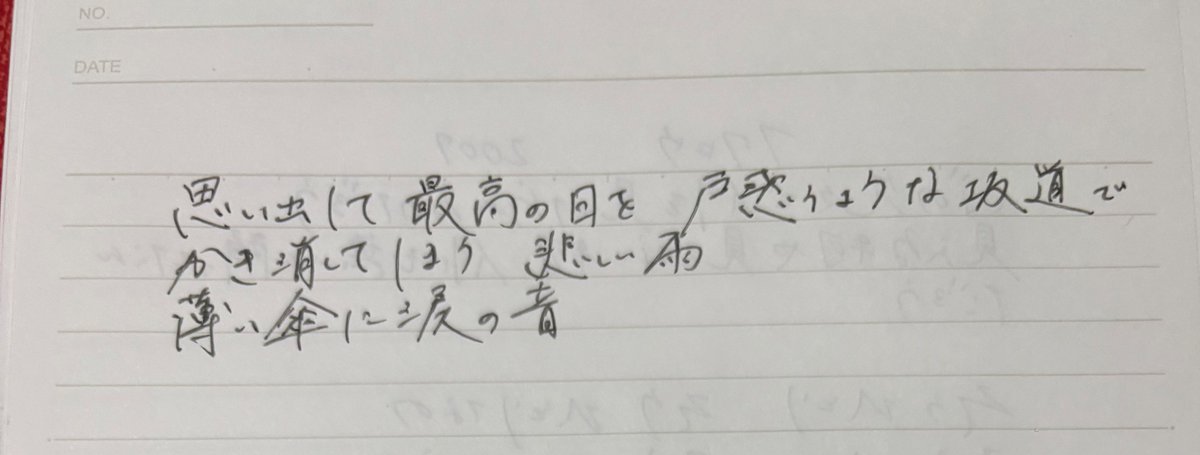 NO.
DATE
思い出して 最高の日を 戸惑うような坂道で
かき消してしまう 悲しい雨
薄い傘に涙の音